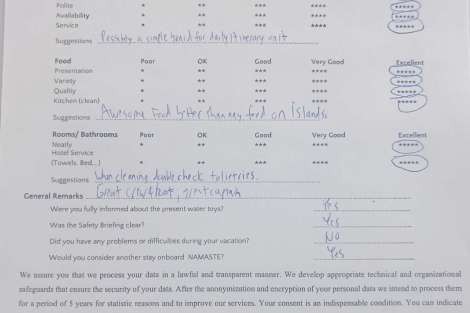 Polite * ** *** **** *****
Availability * ** *** **** *****
Service * ** *** **** *****
Suggestions Possibly a simple board for daily itinerary visit
Food Poor OK Good Very Good Excellent
Presentation * ** *** **** *****
Variety * ** *** **** *****
Quality * ** *** **** *****
Kitchen (clean) * ** *** **** *****
Suggestions Awesome Food better than any food on Islands
Rooms/ Bathrooms Poor OK Good Very Good Excellent
Neatly * ** *** **** *****
Hotel Service
(Towels, Bed...) * ** *** **** *****
Suggestions When cleaning double check toiletries.
General Remarks Great crew & boat, great captain
Were you fully informed about the present water toys? Yes
Was the Safety Briefing clear? Yes
Did you have any problems or difficulties during your vacation? NO
Would you consider another stay onboard NAMASTE? Yes
We assure you that we process your data in a lawful and transparent manner. We develop appropriate technical and organizational
safeguards that ensure the security of your data. After the anonymization and encryption of your personal data we intend to process them
for a period of 5 years for statistic reasons and to improve our services. Your consent is an indispensable condition. You can indicate